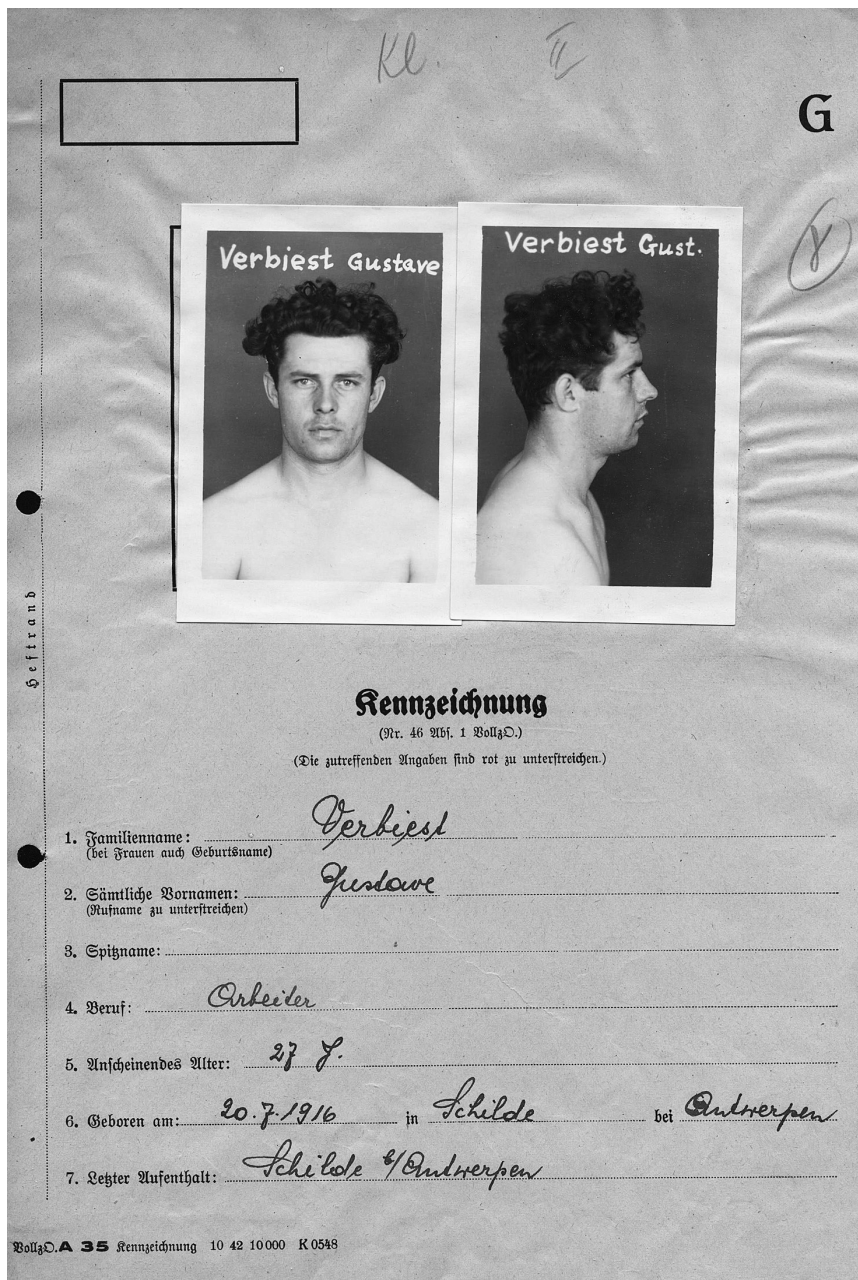 Kl. II
G
Verbiest Gustave
Verbiest Gust.
Heftrand
Kennzeichnung
(Nr. 46 Abs. 1 VollzO.)
(Die zutreffenden Angaben sind rot zu unterstreichen.)
1. Familienname: Verbiest
(bei Frauen auch Geburtsname)
2. Sämtliche Vornamen: Gustave
(Rufname zu unterstreichen)
3. Spitzname:
4. Beruf: Arbeiter
5. Anscheinendes Alter: 27 J.
6. Geboren am: 20.7.1916 in Schilde bei Antwerpen
7. Letzter Aufenthalt: Schilde b/Antwerpen
VollzO. A 35 Kennzeichnung 10 42 10000 K 0548